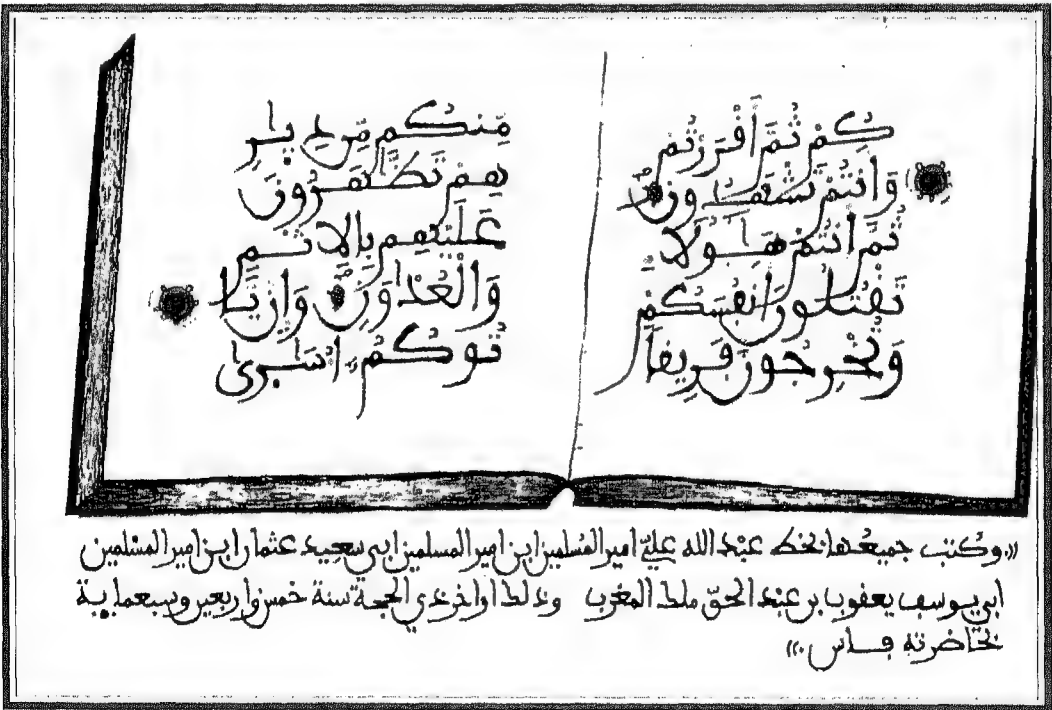 كُمْ ثُمَّ أَقْرَرْتُمْ
وَأَنتُمْ تَشْهَدُونَ
ثُمَّ أَنتُمْ هَٰؤُلَاءِ
تَقْتُلُونَ أَنفُسَكُمْ
وَتُخْرِجُونَ فَرِيقاً
مِّنكُم مِّن دِيٰرِ
هِمْ تَظَّٰهَرُونَ
عَلَيْهِم بِالِاثْمِ
وَالْعُدْوَٰنِ وَإِنْ يَّا
تُوكُمْ أُسَٰرَىٰ
((.وكتب جميعها بخط عبد الله عليّ امير المسلمين ابن امير المسلمين ابي سعيد عثمان ابن امير المسلمين
ابي يوسف يعقوب بن عبد الحقّ ملك المغرب وذلك اواخر ذي الحجة سنة خمس واربعين وسبعماية
بحاضرته فاس.))